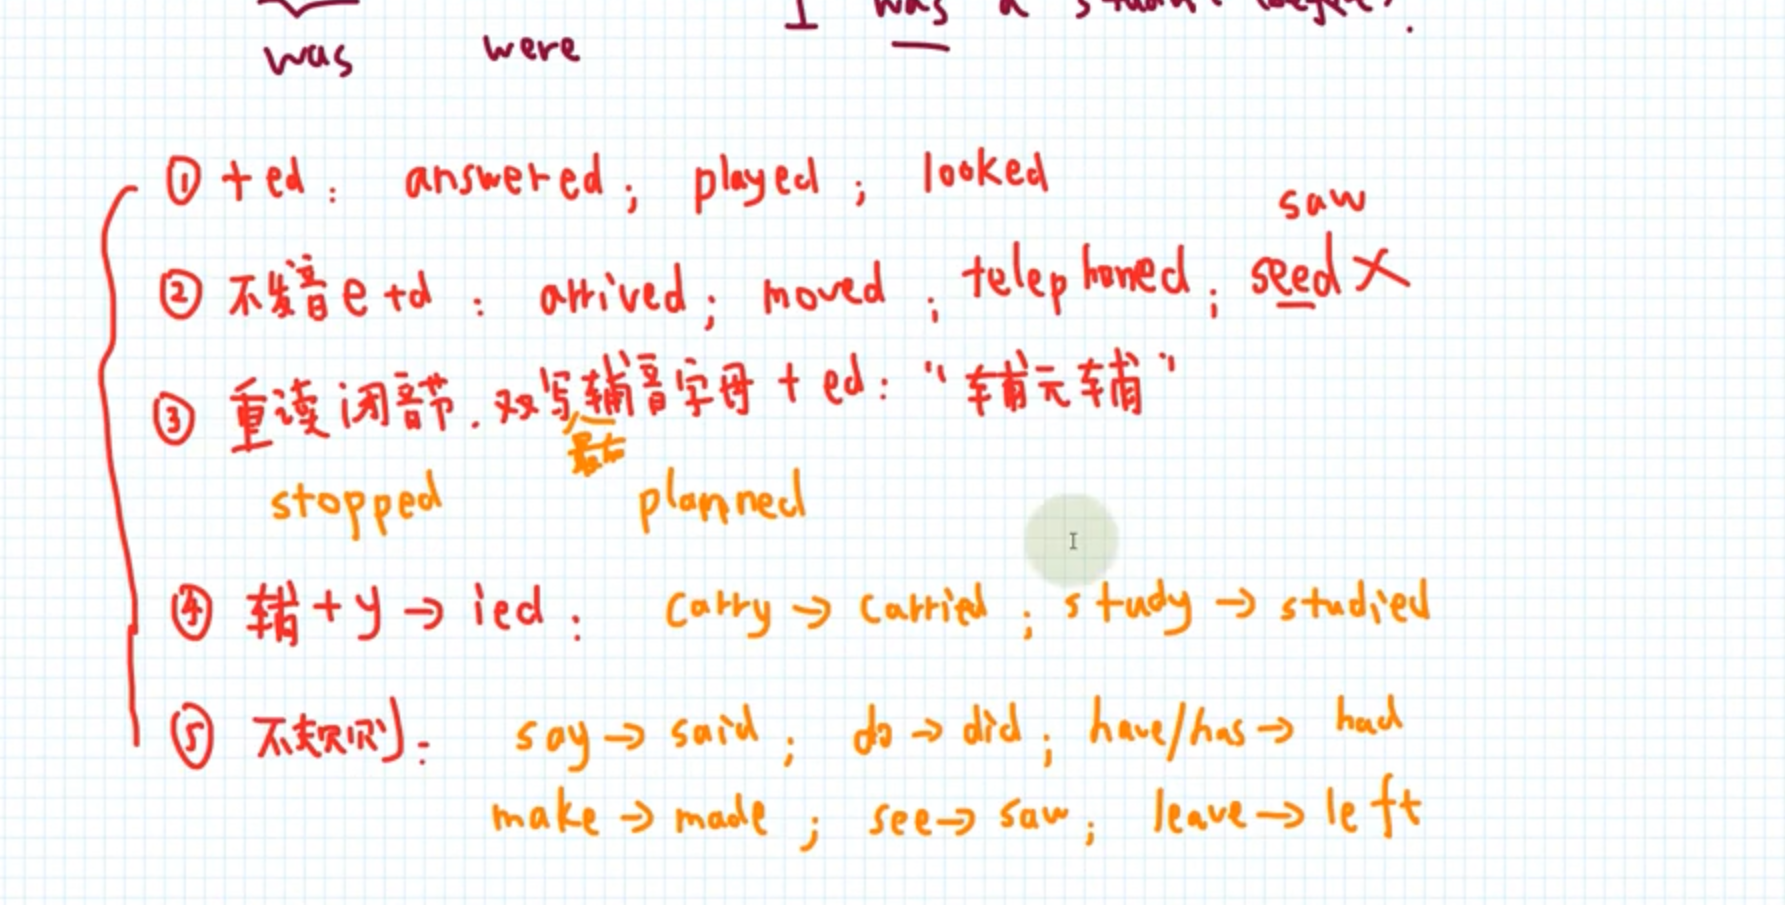 I was a
was were
① +ed: answered; played; looked
saw
② 不发音e+d: arrived; moved; telephoned; seed ×
③ 重读闭音节.双写辅音字母+ed:“辅元辅”
最后
stopped planned
④ 辅+y→ied: carry→carried; study→studied
⑤ 不规则: say→said; do→did; have/has→had
make→made; see→saw; leave→left